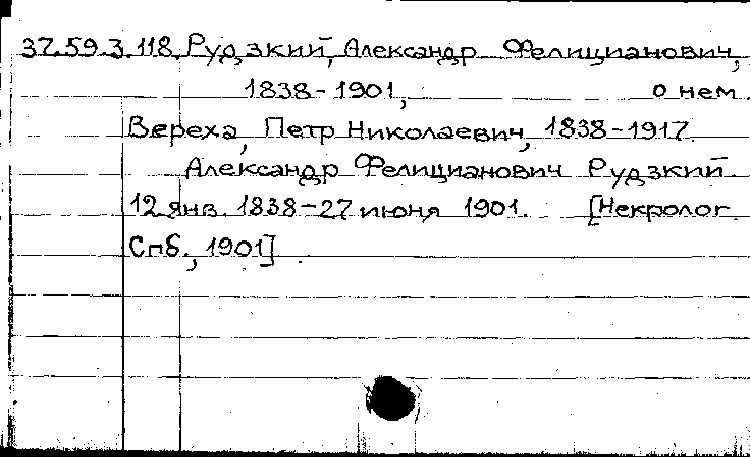 37.59.3.118. Рудзкий, Александр Фелицианович,
1838-1901, о нем
Вереха, Петр Николаевич, 1838-1917.
Александр Фелицианович Рудзкий
12 янв. 1838-27 июня 1901. [Некролог
Спб., 1901]